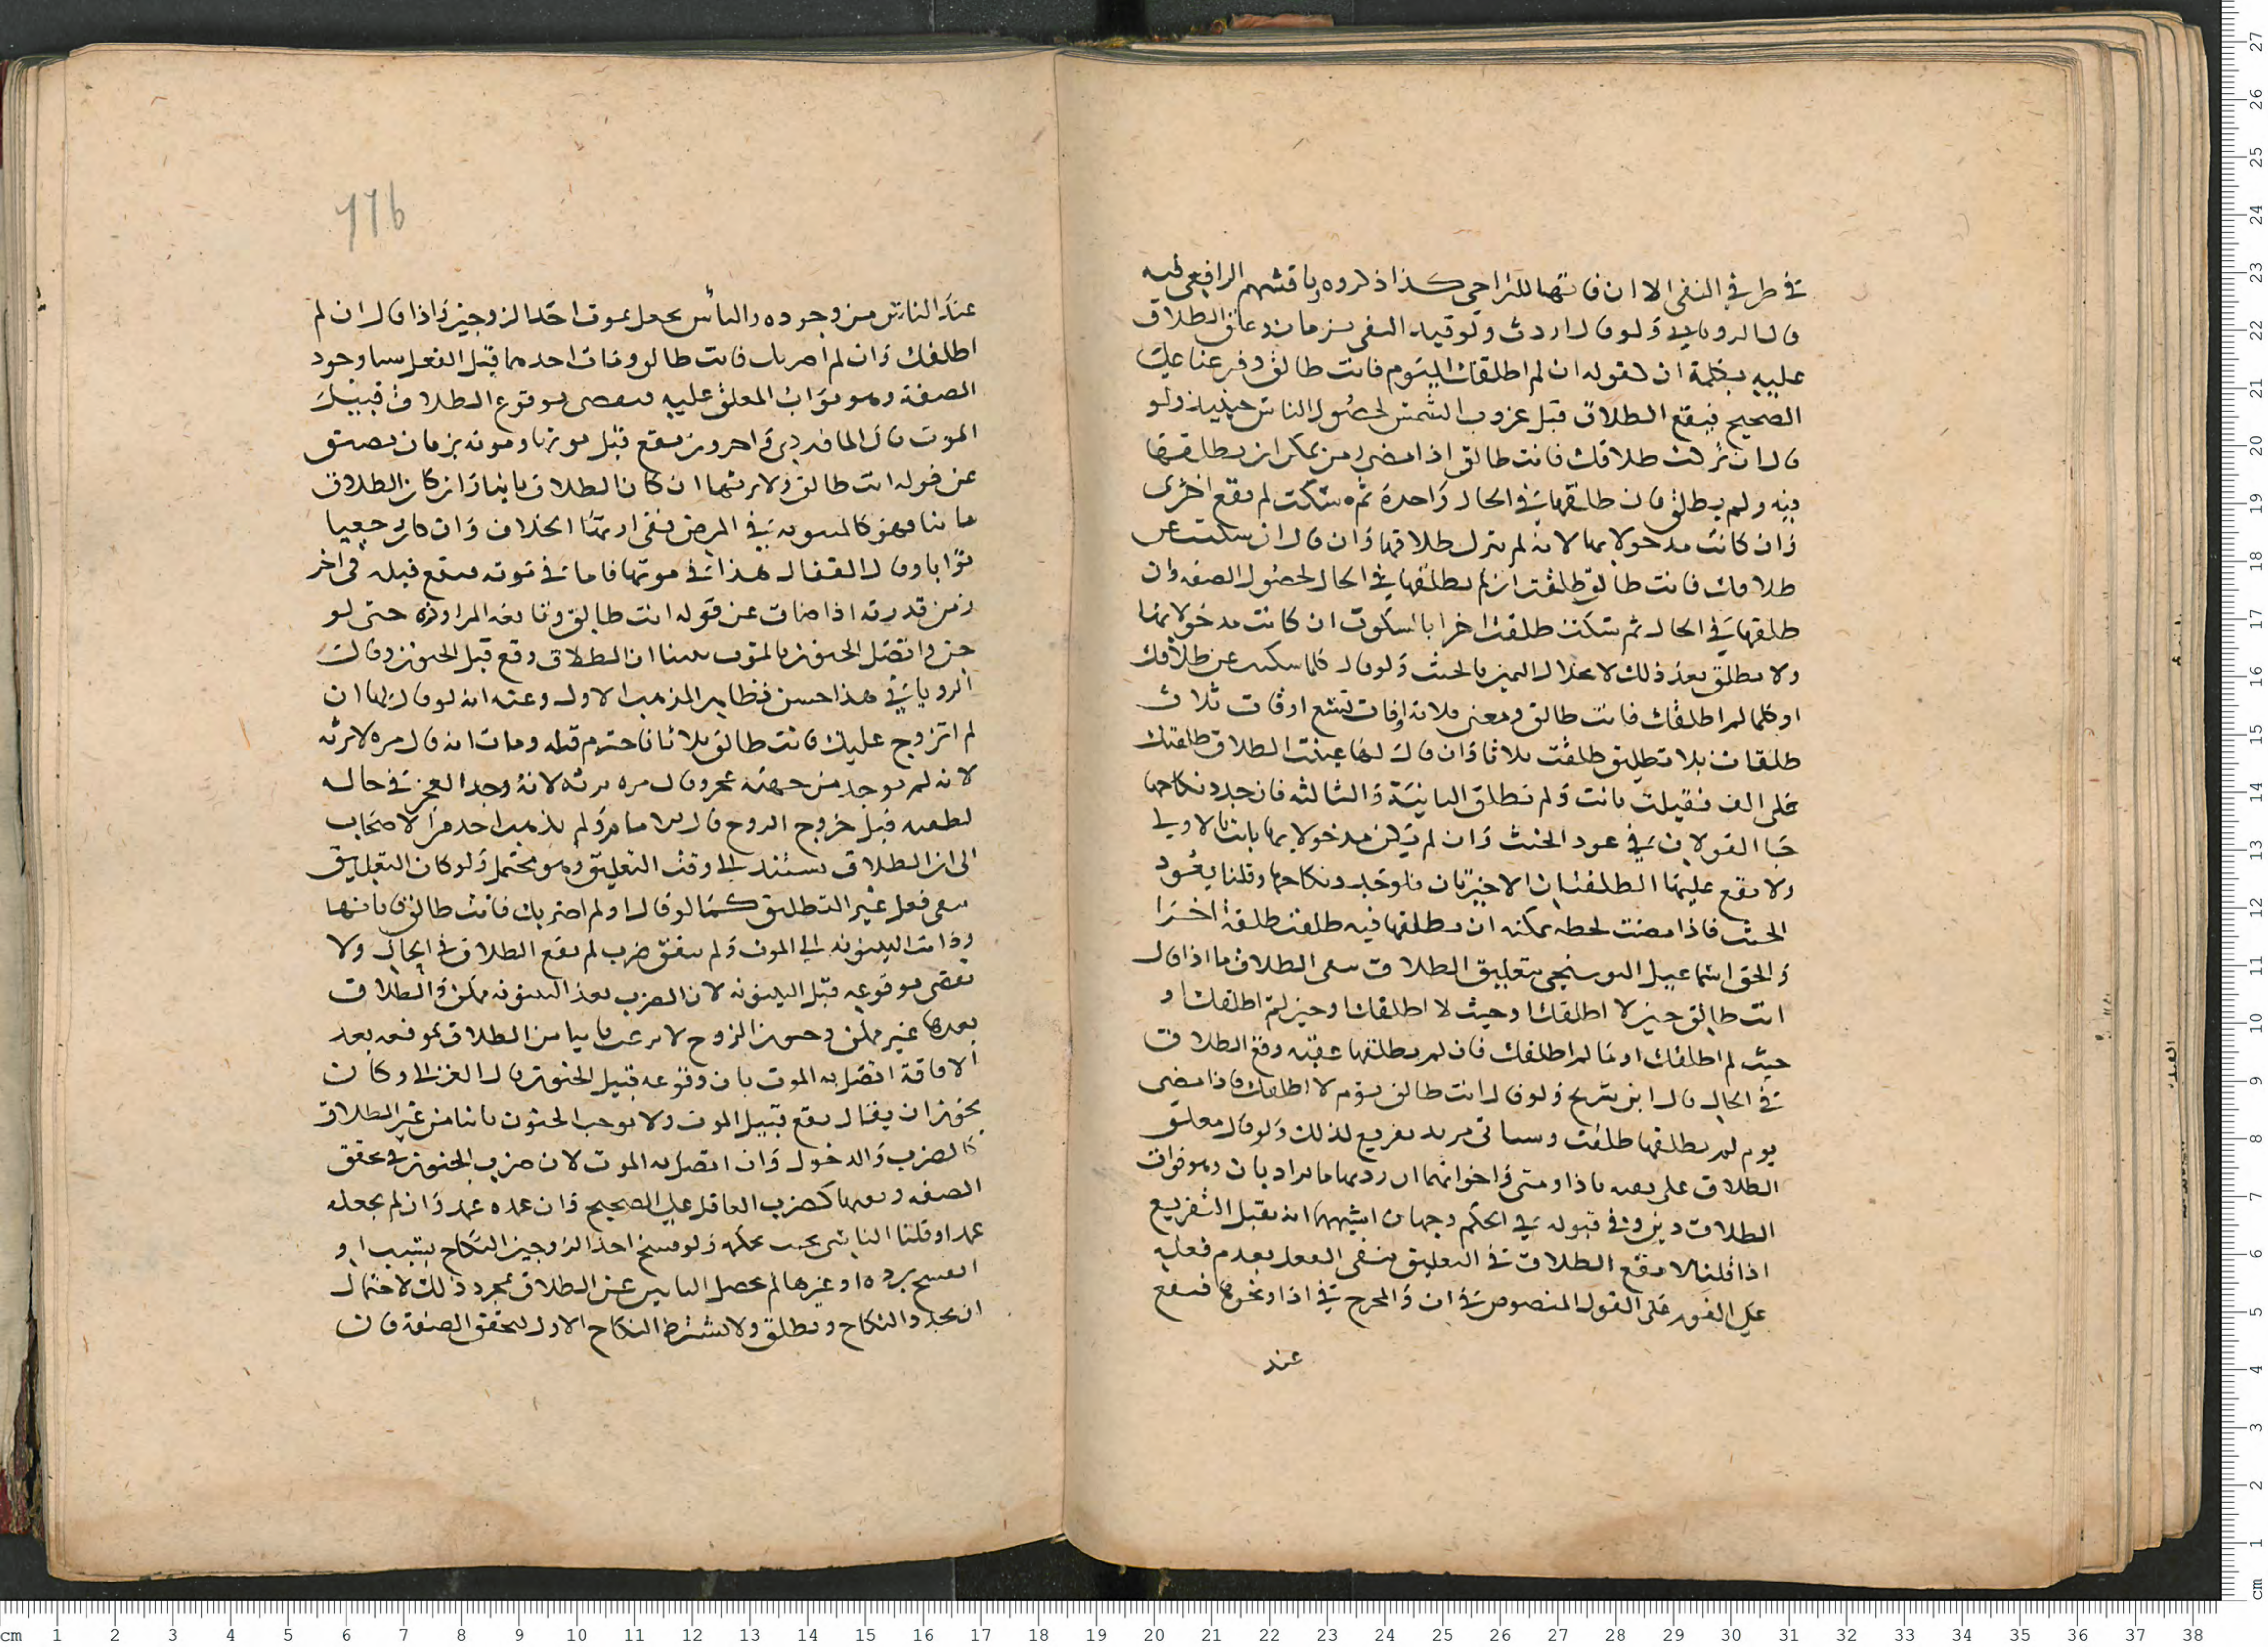 في طرفي النفي الا ان فانها للتراخي كذا ذكروه وناقشهم الرافعي فيه
قال الروياني ولو قال اردت ولو قيد النفي بزمان وعلق الطلاق
عليه بكلمة ان كقوله ان لم اطلقك اليوم فانت طالق وفرعنا علي
الصحيح فيقع الطلاق قبل غروب الشمس لحصول الياس حينيذ ولو
قال ان تركت طلاقك فانت طالق اذا مضي زمن يمكن ان يطلقها
فيه ولم يطلق فان طلقها في الحال واحدة ثم سكت لم يقع اخرى
وان كانت مدخولا بها لانه لم يترك طلاقها وان قال ان سكت عن
طلاقك فانت طالق طلقت ان لم يطلقها في الحال لحصول الصفة وان
طلقها في الحال ثم سكت طلقت اخرا بالسكوت ان كانت مدخولا بها
ولا تطلق بعد ذلك لانحلال اليمين بالحنث ولو قال كلما سكت عن طلاقك
او كلما لم اطلقك فانت طالق ومضي ثلاثة اوقات تسع اوقات ثلاث
طلقات بلا تطليق طلقت ثلاثا وان قال لها طلقتك
على الف فقبلت بانت ولم تطلق الثانية والثالثة فان جدد نكاحها
جا القولان في عود الحنث وان لم تكن مدخولا بها بانت بالاولي
ولا يقع عليها الطلقتان الاخيرتان فلو جدد نكاحها وقلنا يعود
الحنث فاذا مضت لحظة يمكنه ان يطلقها فيه طلقت طلقة اخرا
والحق اسماعيل البوسنجي بتعليق الطلاق بنفي الطلاق ما اذا قال
انت طالق حين لا اطلقك او حيث لا اطلقك او حين لم اطلقك او
حيث لم اطلقك او ما لم اطلقك فان لم يطلقها عقبه وقع الطلاق
في الحال قال ابن سريج ولو قال انت طالق يوم لا اطلقك فاذا مضي
يوم لم يطلقها طلقت وسياتي مزيد تفريع لذلك ولو قال معلق
الطلاق على نفيه باذا ومتى واخواتهما اردت بها ما يراد بان وهو فوات
الطلاق دين وفي قبوله في الحكم وجهان اشبههما انه يقبل التفريع
اذا قلنا لا يقع الطلاق في التعليق بنفي الفعل بعدم فعله
علي الفور على القول المنصوص في ان والمخرج في اذا ونحوها فيقع
عند
عند الياس من وجوده والياس يحصل بموت احد الزوجين واذا قال ان لم
اطلقك وان لم اضربك فانت طالق ومات احدهما قبل الفعل وجود
الصفة وهو فوات المعلق عليه فيقضى بوقوع الطلاق قبيل
الموت قال الماوردي واخرون يقع قبل موتها وموته بزمان يضيق
عن قوله انت طالق ولا يرثها ان كان الطلاق باينا وان كان الطلاق
باينا فهو كالمبتوتة في المرض ففي ارثها الخلاف وان كان رجعيا
توارثا وقال القفال هذا في موتها فاما في موته فيقع قبله في اخر
زمن قدرته اذا ضاق عن قوله انت طالق حتى لو
جن واتصل الجنون بالموت بينا ان الطلاق وقع قبل الجنون وقال
الروياني هذا حسن وظاهر المذهب الاول وعنه انه لو قال لها ان
لم اتزوج عليك فانت طالق ثلاثا فاخترم قبله ومات انه قال مرة لا ترثه
لانه لم يوجد من جهته عجز وقال مرة ترثه لانه وجد العجز في حالة
لطيفة قبل خروج الروح قال الامام ولم يذهب احد من الاصحاب
الى ان الطلاق يستند الي وقت التعليق وهو محتمل ولو كان التعليق
بنفي فعل غير التطليق كما لو قال ان لم اضربك فانت طالق فابانها
ودامت البينونة الي الموت ولم يتفق ضرب لم يقع الطلاق في الحال ولا
يقضي بوقوعه قبل البينونة لان الضرب بعد البينونة ممكن والطلاق
بعدها غير ممكن وجنون الزوج لا يوجب ياسا من الطلاق لتوقعه بعد
الافاقة اتصل به الموت بان وقوعه قبيل الجنون قال الغزالي وكان
يجوز ان يقال يقع قبيل الموت ولا يوجب الجنون ياسا من غير الطلاق
كالضرب والدخول وان اتصل به الموت لان ضرب المجنون في تحقق
الصفة ونفيها كضرب العاقل علي الصحيح فان عمده عمد وان لم نجعله
عمدا وقلنا الناسي يحنث ولو فسخ احد الزوجين النكاح بسبب او
انفسخ بردة او غيرها لم يحصل الياس عن الطلاق بمجرد ذلك لاحتمال
ان يجدد النكاح ويطلق ولا يشترط النكاح الاول لتحقق الصفة فان